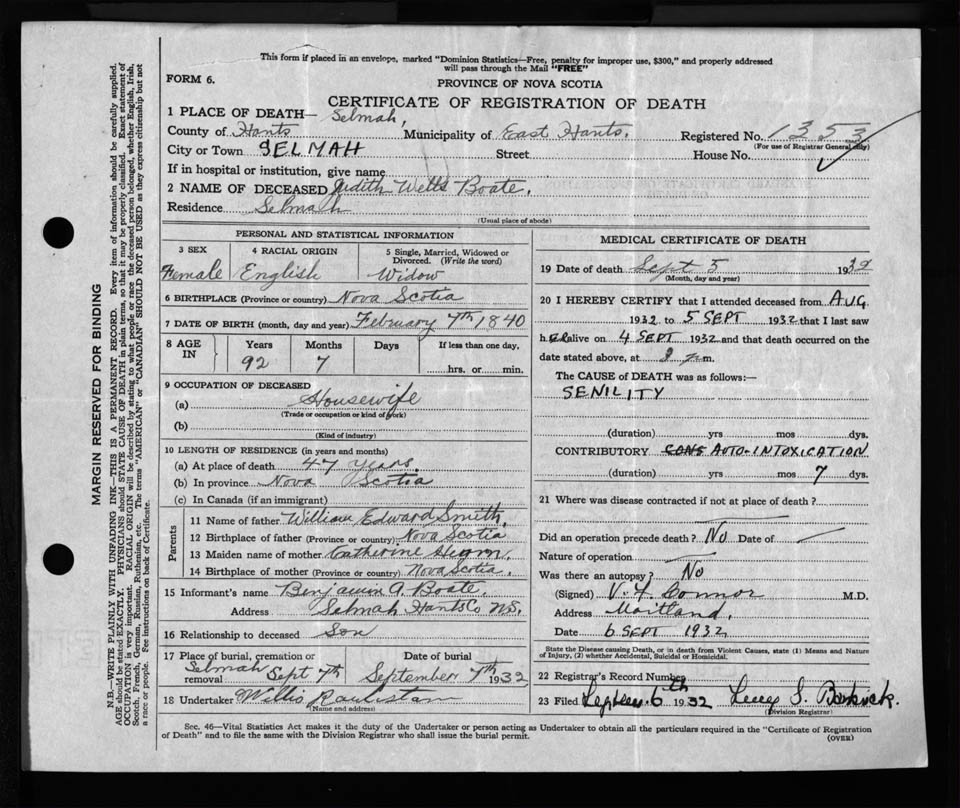 This form if placed in an envelope, marked "Dominion Statistics—Free, penalty for improper use, $300," and properly addressed
will pass through the Mail "FREE"
FORM 6.
PROVINCE OF NOVA SCOTIA
CERTIFICATE OF REGISTRATION OF DEATH
1 PLACE OF DEATH— Selmah,
County of Hants Municipality of East Hants. Registered No. 1353
(For use of Registrar General only)
City or Town SELMAH Street House No.
If in hospital or institution, give name
2 NAME OF DECEASED Judith Wells Boate.
Residence Selmah
(Usual place of abode)
PERSONAL AND STATISTICAL INFORMATION
3 SEX 4 RACIAL ORIGIN 5 Single, Married, Widowed or
Divorced. (Write the word)
Female English Widow
6 BIRTHPLACE (Province or country) Nova Scotia
7 DATE OF BIRTH (month, day and year) February 7th 1840
8 AGE IN Years Months Days If less than one day,
92 7 hrs. or min.
9 OCCUPATION OF DECEASED
(a) Housewife
(Trade or occupation or kind of work)
(b)
(Kind of industry)
10 LENGTH OF RESIDENCE (in years and months)
(a) At place of death 47 years.
(b) In province Nova Scotia
(c) In Canada (if an immigrant)
Parents
11 Name of father William Edward Smith,
12 Birthplace of father (Province or country) Nova Scotia
13 Maiden name of mother Catherine
14 Birthplace of mother (Province or country) Nova Scotia.
15 Informant's name Benjamin A. Boate.
Address Selmah Hants Co N.S.
16 Relationship to deceased Son
17 Place of burial, cremation or removal Date of burial
Selmah Sept 7th September 7th 1932
18 Undertaker Willis
(Name and address)
MEDICAL CERTIFICATE OF DEATH
19 Date of death Sept 5 1932
(Month, day and year)
20 I HEREBY CERTIFY that I attended deceased from AUG.
1932 to 5 SEPT 1932 that I last saw
h er alive on 4 SEPT 1932 and that death occurred on the
date stated above, at m.
The CAUSE of DEATH was as follows:—
SENILITY
(duration) yrs mos dys.
CONTRIBUTORY CONS AUTO-INTOXICATION
(duration) yrs mos 7 dys.
21 Where was disease contracted if not at place of death?
Did an operation precede death? No Date of
Nature of operation
Was there an autopsy? No
(Signed) V. F. Connor M.D.
Address Maitland.
Date 6 SEPT 1932
State the Disease causing Death, or in death from Violent Causes, state (1) Means and Nature
of Injury, (2) whether Accidental, Suicidal or Homicidal.
22 Registrar's Record No.
23 Filed 6th 1932 Lucy S.
(Division Registrar)
Sec. 46—Vital Statistics Act makes it the duty of the Undertaker or person acting as Undertaker to obtain all the particulars required in the "Certificate of Registration
of Death" and to file the same with the Division Registrar who shall issue the burial permit.
(OVER)
MARGIN RESERVED FOR BINDING
N.B.—WRITE PLAINLY WITH UNFADING INK—THIS IS A PERMANENT RECORD. Every item of information should be carefully supplied.
AGE should be stated EXACTLY. PHYSICIANS should STATE CAUSE OF DEATH in plain terms, so that it may be properly classified. Exact statement of
OCCUPATION is very important. RACIAL ORIGIN will be described by stating to what people or race the deceased person belonged, whether English, Irish,
Scotch, French, German, Russian, Ruthenian, etc. The terms "AMERICAN" or "CANADIAN" SHOULD NOT BE USED as they express citizenship but not
a race or people. See instructions on back of Certificate.